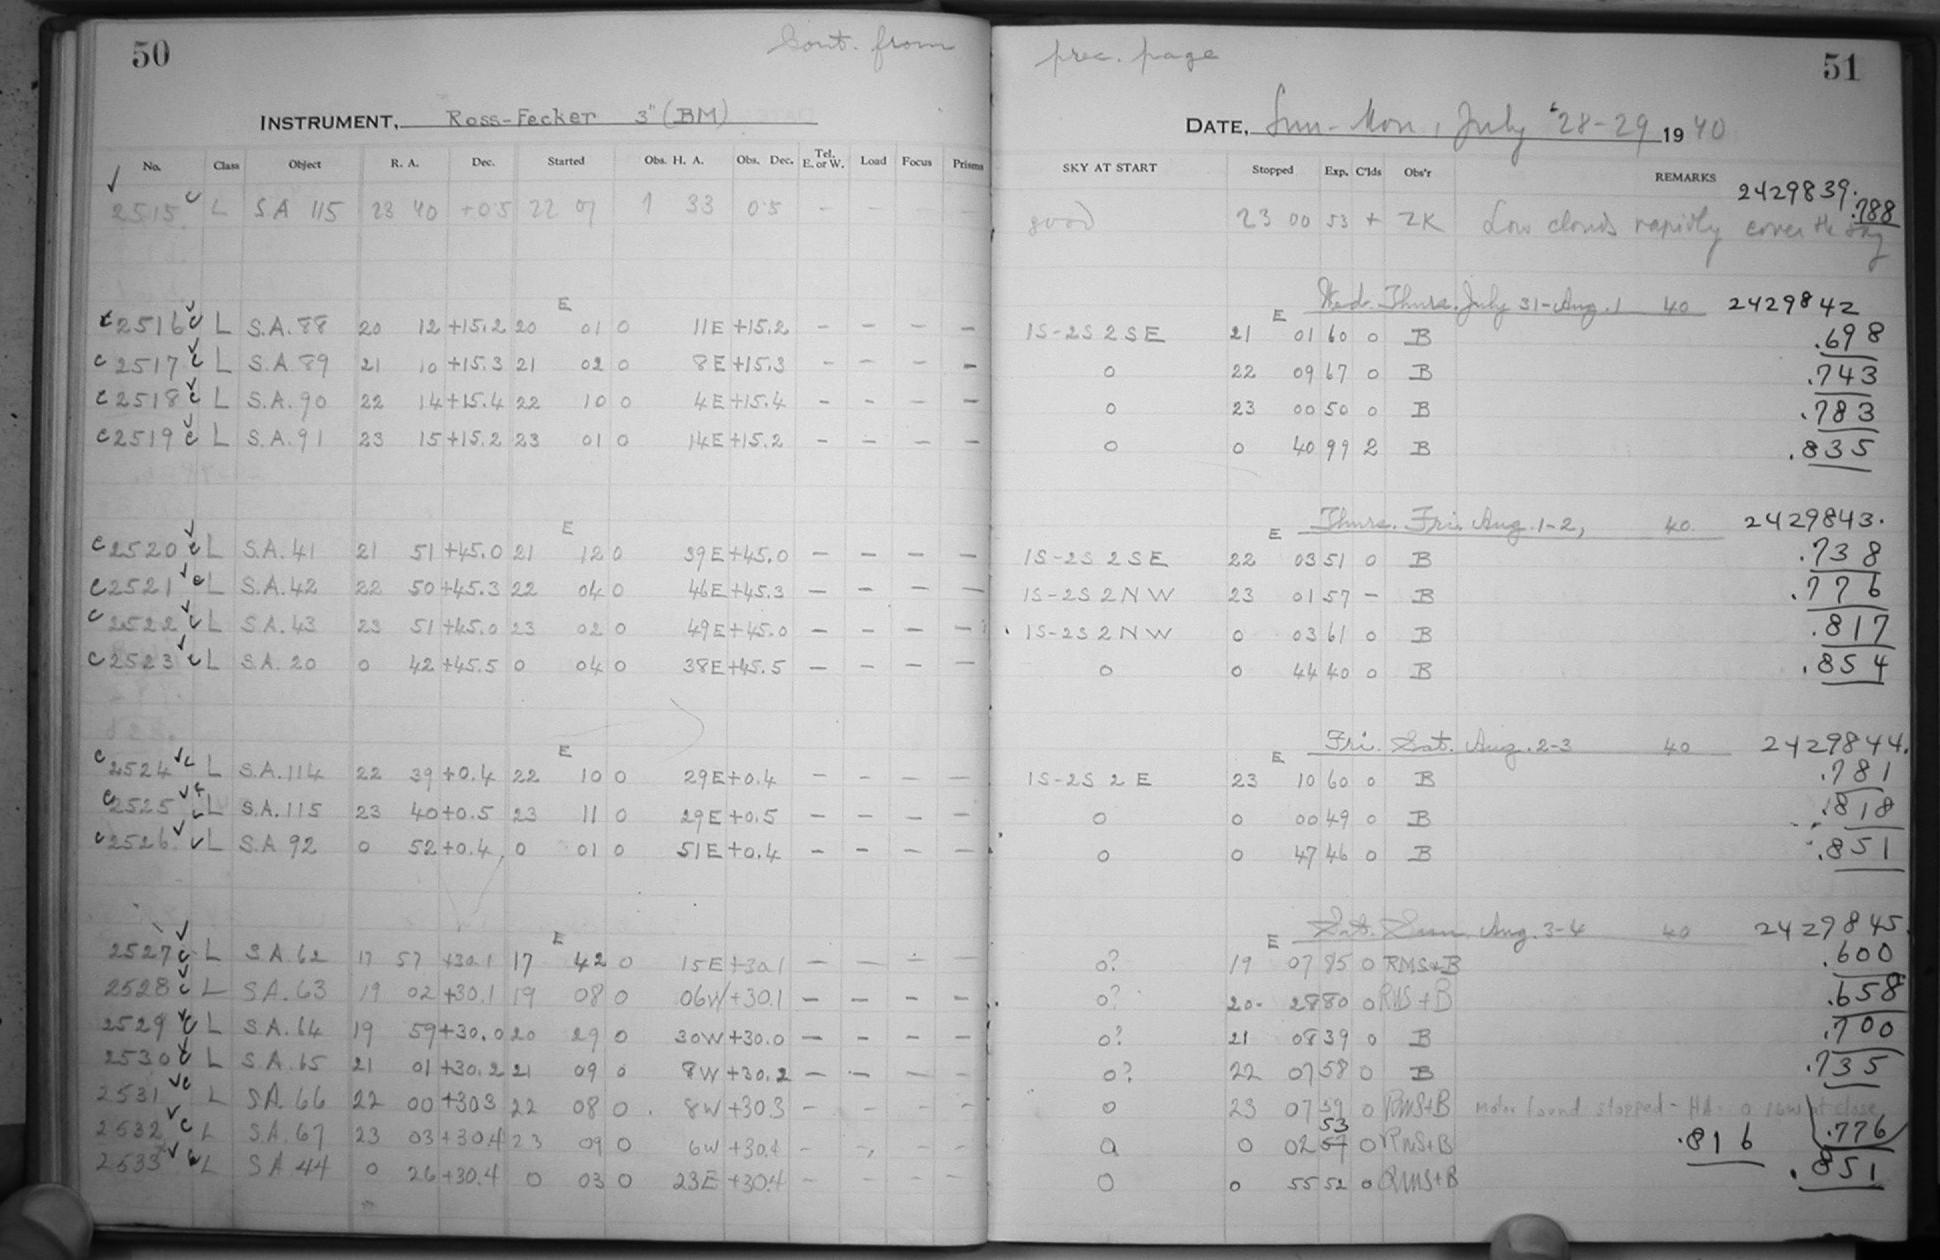 50
Cont. from
INSTRUMENT, Ross-Fecker 3" (BM)
No. Class Object R. A. Dec. Started Obs. H. A. Obs. Dec. Tel. E. or W. Load Focus Prisms
2515 c L SA 115 23 40 +0.5 22 07 1 33 0.5 - - - -
E
c2516 c L S.A.88 20 12 +15.2 20 01 0 11E +15.2 - - - -
c2517 c L S.A.89 21 10 +15.3 21 02 0 8E +15.3 - - - -
c2518 c L S.A.90 22 14 +15.4 22 10 0 4E +15.4 - - - -
c2519 c L S.A.91 23 15 +15.2 23 01 0 14E +15.2 - - - -
E
c2520 c L S.A.41 21 51 +45.0 21 12 0 39E +45.0 - - - -
c2521 c L S.A.42 22 50 +45.3 22 04 0 46E +45.3 - - - -
c2522 c L S.A.43 23 51 +45.0 23 02 0 49E +45.0 - - - -
c2523 c L S.A.20 0 42 +45.5 0 04 0 38E +45.5 - - - -
E
c2524 c L S.A.114 22 39 +0.4 22 10 0 29E +0.4 - - - -
c2525 c L S.A.115 23 40 +0.5 23 11 0 29E +0.5 - - - -
c2526 c L S.A 92 0 52 +0.4 0 01 0 51E +0.4 - - - -
E
2527 c L S A 62 17 57 +30.1 17 42 0 15E +30.1 - - - -
2528 c L S A.63 19 02 +30.1 19 08 0 06W +30.1 - - - -
2529 c L S A.64 19 59 +30.0 20 29 0 30W +30.0 - - - -
2530 c L S A.65 21 01 +30.2 21 09 0 8W +30.2 - - - -
2531 c L SA.66 22 00 +30.3 22 08 0 8W +30.3 - - - -
2532 c L S.A.67 23 03 +30.4 23 09 0 6W +30.4 - - - -
2533 c L S A 44 0 26 +30.4 0 03 0 23E +30.4 - - - -
prec. page
51
DATE, Sun-Mon, July 28-29 1940
SKY AT START Stopped Exp. C'lds Obs'r REMARKS
2429839.
.788
good 23 00 53 + ZK Low clouds rapidly cover the sky
E Wed. Thurs. July 31-Aug. 1 40 2429842
1S-2S 2SE 21 01 60 0 B .698
0 22 09 67 0 B .743
0 23 00 50 0 B .783
0 0 40 99 2 B .835
E Thurs. Fri. Aug. 1-2, 40. 2429843.
1S-2S 2SE 22 03 51 0 B .738
1S-2S 2NW 23 01 57 - B .776
1S-2S 2NW 0 03 61 0 B .817
0 0 44 40 0 B .854
E Fri. Sat. Aug. 2-3 40 2429844.
1S-2S 2E 23 10 60 0 B .781
0 0 00 49 0 B .818
0 0 47 46 0 B .851
E Sat. Sun. Aug. 3-4 40 2429845.
0? 19 07 85 0 RMS+B .600
0? 20 28 80 0 RMS+B .658
0? 21 08 39 0 B .700
0? 22 07 58 0 B .735
0 23 07 59 0 RMS+B Motor found stopped - HA = 0 16W at close .776
53
0 0 02 57 0 RMS+B .816
0 0 55 52 0 RMS+B .851